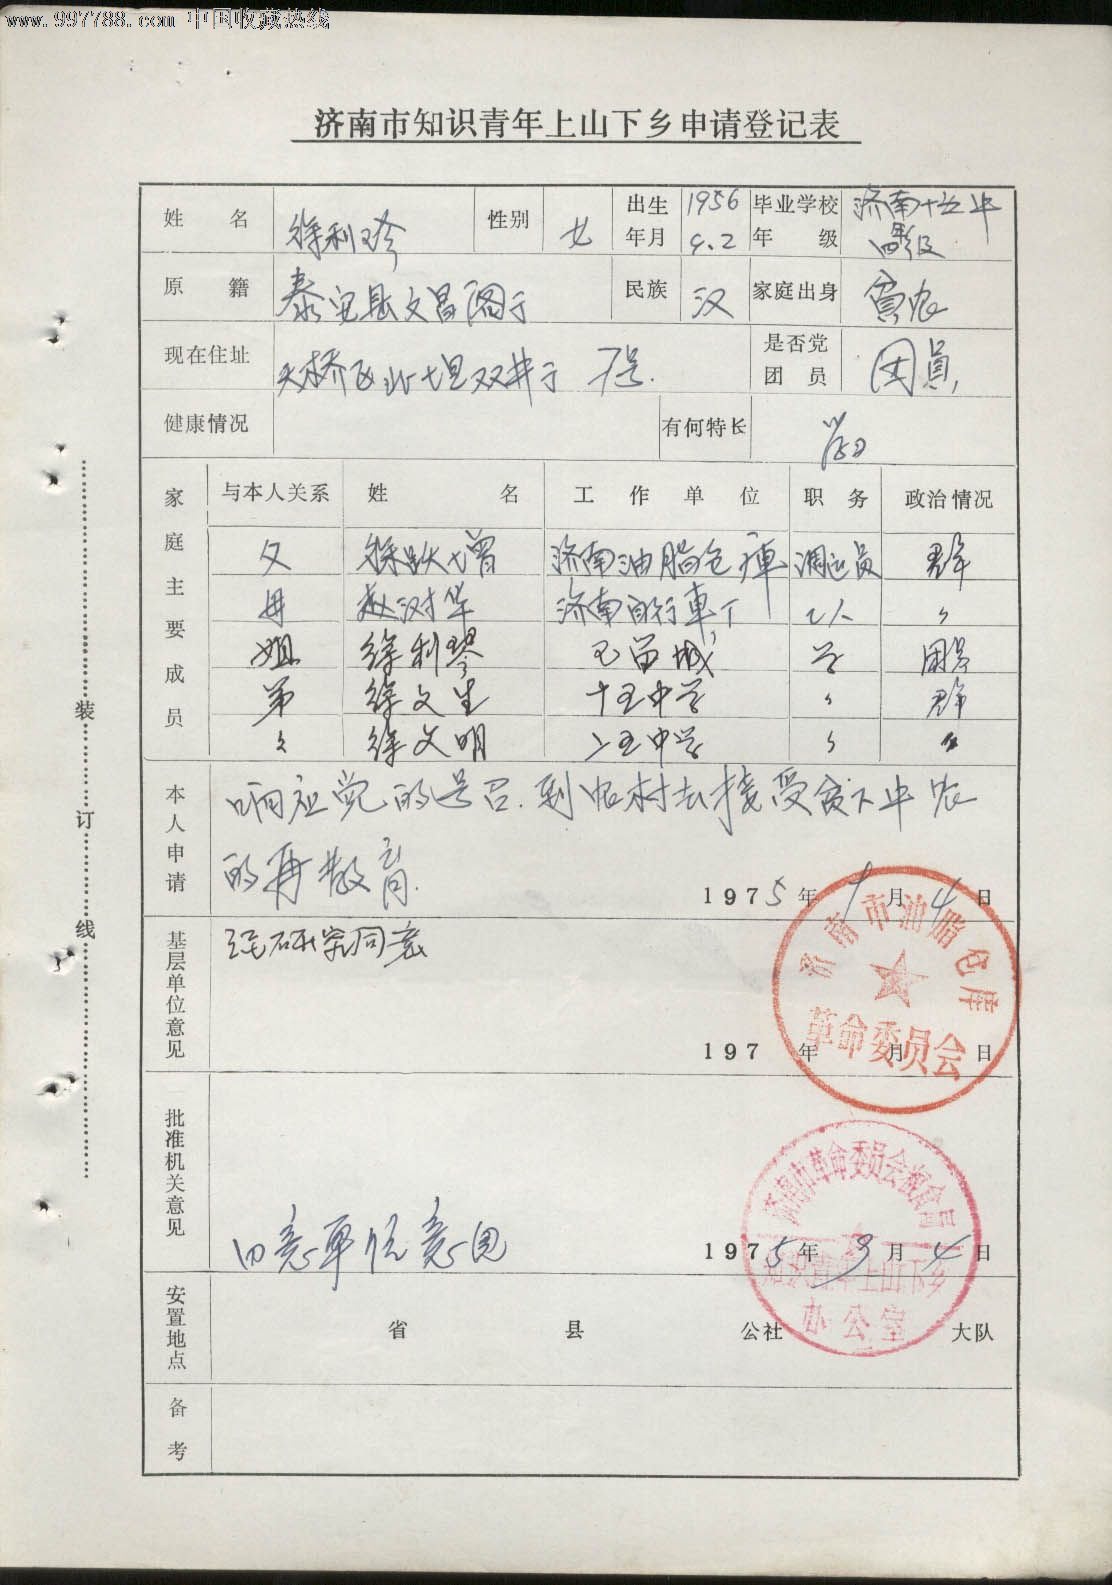 www.997788.com 中国收藏热线
济南市知识青年上山下乡申请登记表
姓名 徐利珍 性别 女 出生年月 1956 9.2 毕业学校年级 济南十五中 四级
原籍 泰安县文昌阁于 民族 汉 家庭出身 贫农
现在住址 天桥区北坦双井于 7号. 是否党团员 团員
健康情况 有何特长
家庭主要成员 与本人关系 姓名 工作单位 职务 政治情况
父 徐跃增 济南油脂仓庫 调运员 群
母 赵汉华 济南自行車厂 工人 〃
姐 徐利琴 学 团员
弟 徐文生 十五中学 〃 群
〃 徐文明 十五中学 〃 〃
本人申请 响应党的号召.到农村去接受贫下中农
的再教育.
1975年9月4日
基层单位意见 经研究同意
197 年 月 日
济南市油脂仓库
革命委员会
批准机关意见 同意单位意见
1975年9月4日
济南市革命委员会粮食局
知识青年上山下乡
办公室
安置地点 省 县 公社 大队
备考
装订线